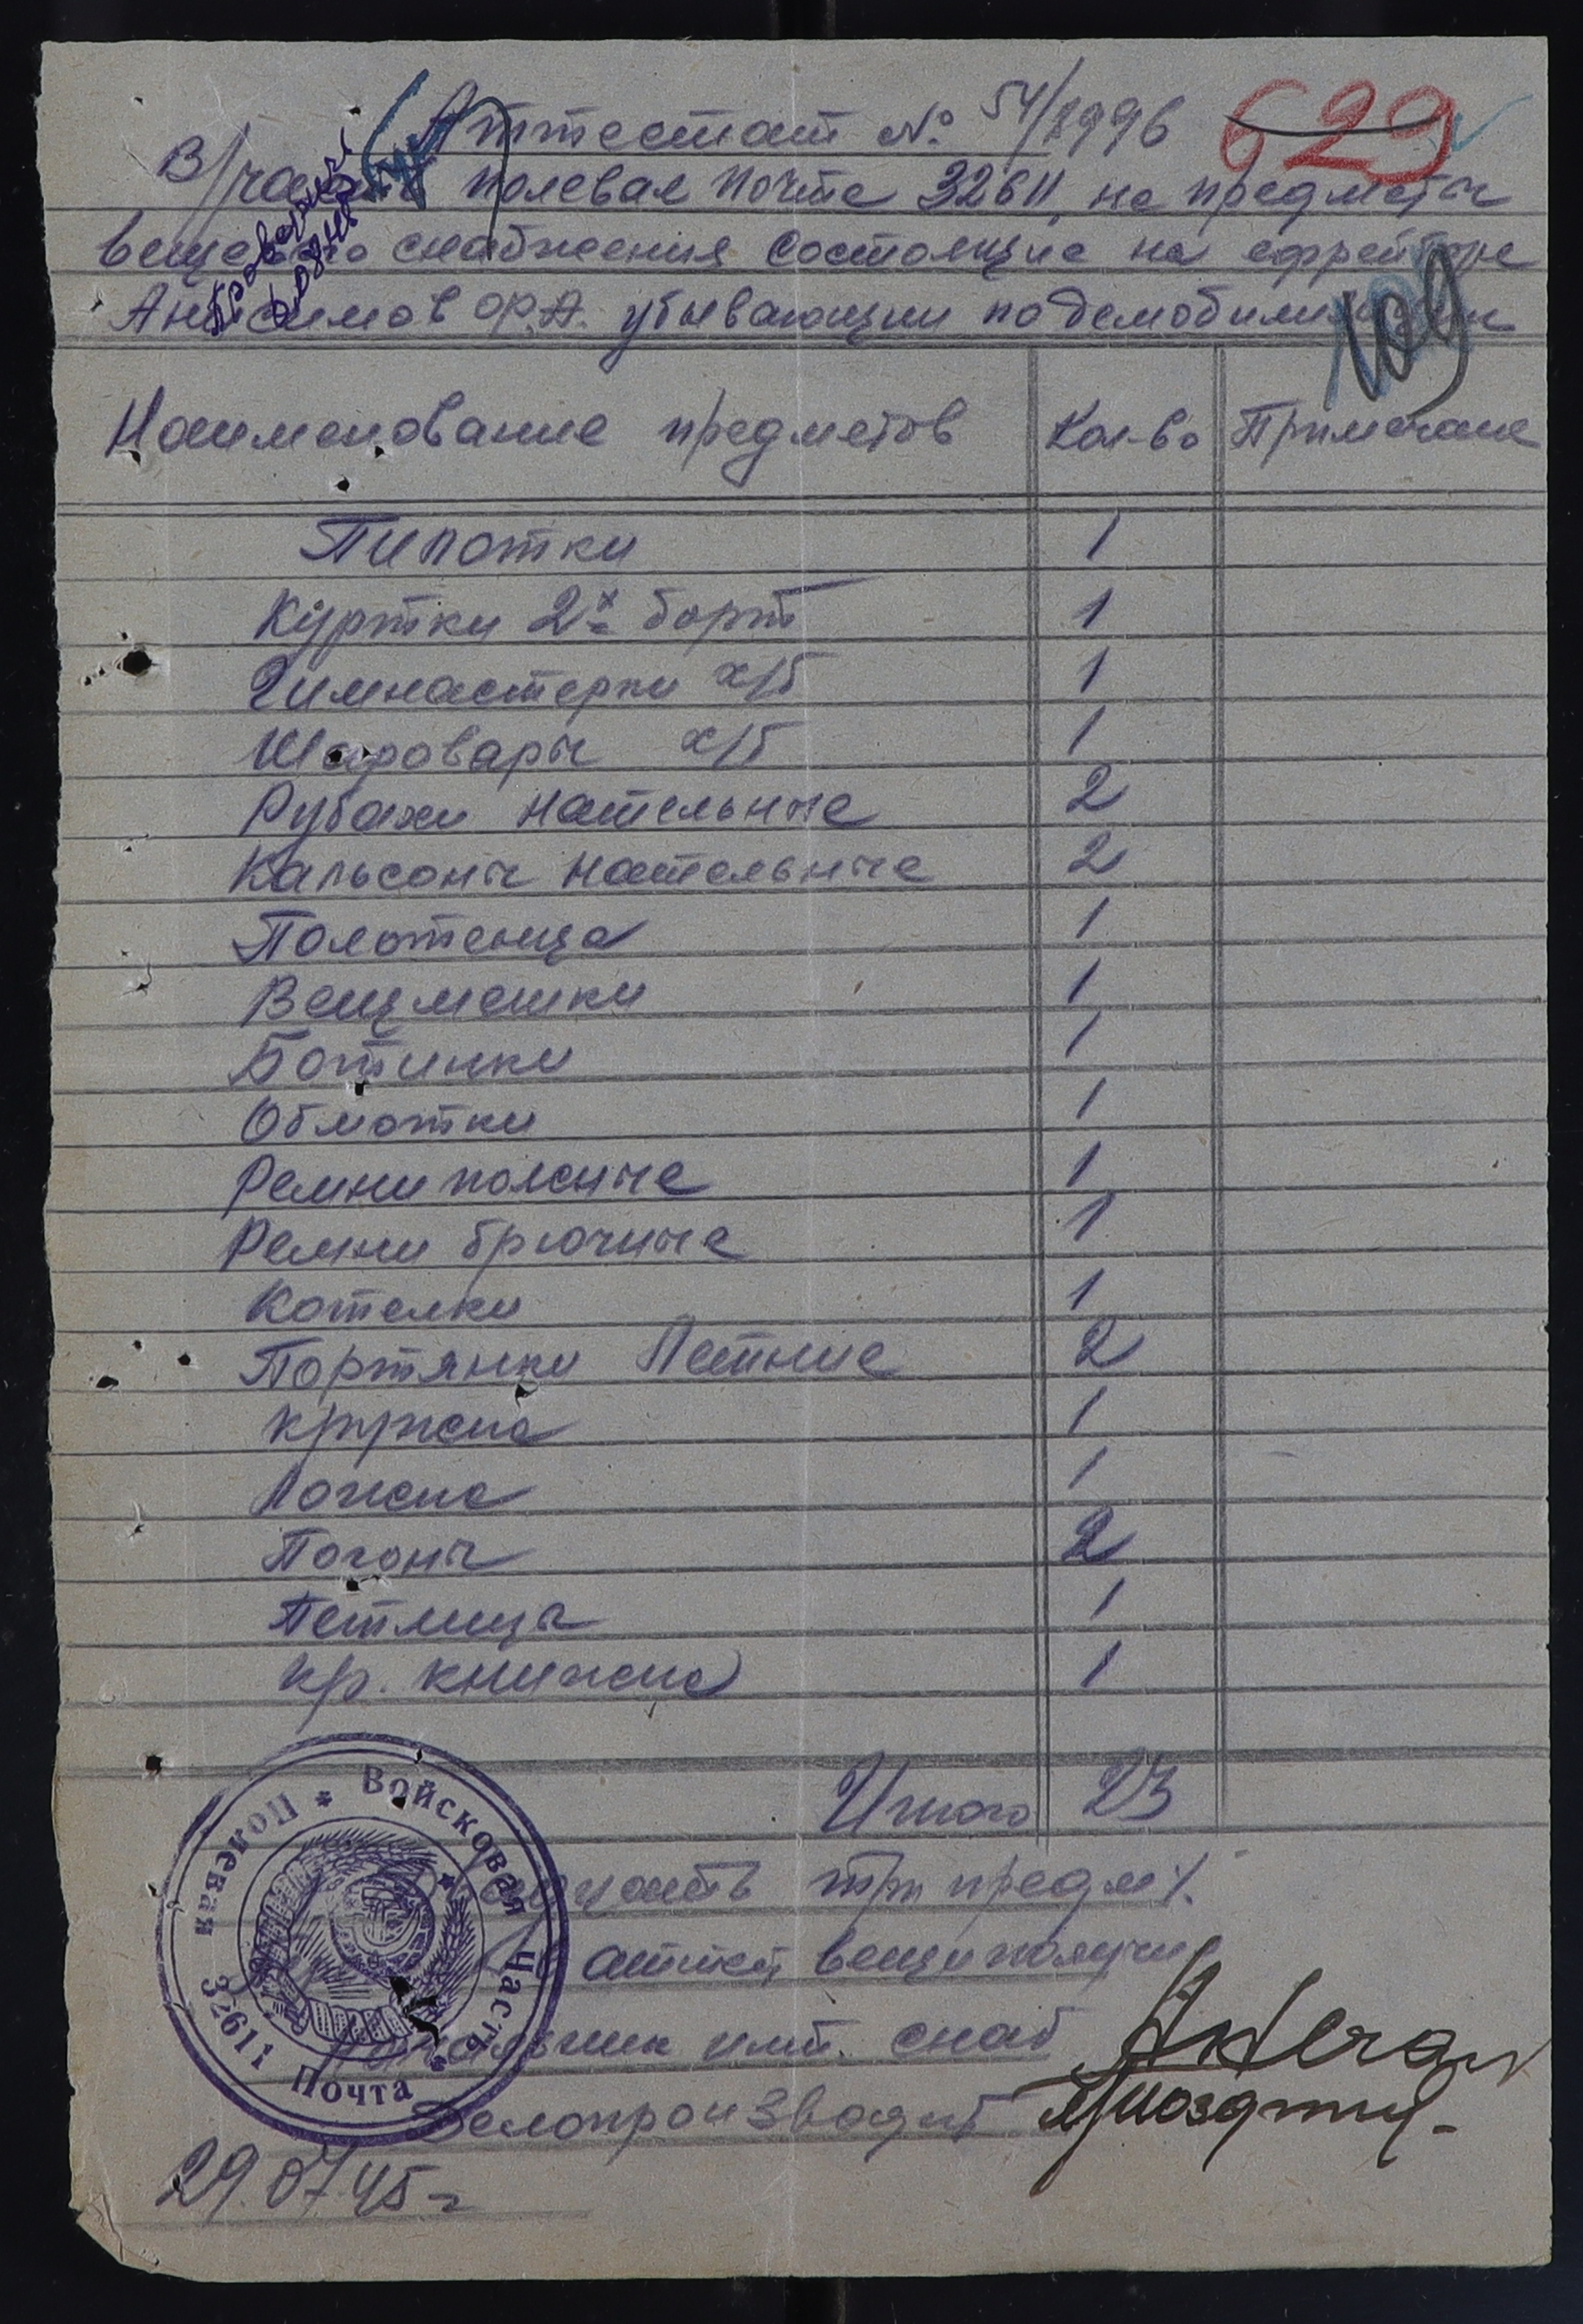 Аттестат № 54/1996
629
В/части полевая почта 32611, на предметы
вещевого снабжения состоящие на ефрейторе
Анисимов Ф.А. убывающии по демобилизации
109
Наименование предметов Кол-во Примечание
Пилотки 1
Куртки 2х борт 1
Гимнастерки х/б 1
Шаровары х/б 1
Рубахи нательные 2
Кальсоны нательные 2
Полотенца 1
Вещмешки 1
Ботинки 1
Обмотки 1
Ремни поясные 1
Ремни брючные 1
Котелки 1
Портянки Летние 2
кружка 1
Ложка 1
Погоны 2
Петлицы 1
кр. книжка 1
Итого 23
Двадцать три предм.
вещи получил
Начальник имт. снаб
Делопроизводит
29.07.45 г
Войсковая часть * Полевая Почта 32611 *